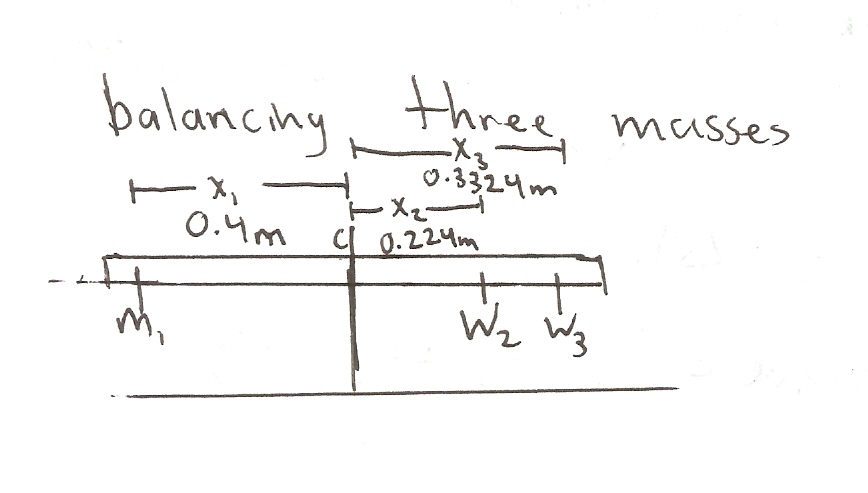 balancing three masses
x₃
0.3324m
x₁
0.4m
x₂
0.224m
C
m₁
W₂
W₃